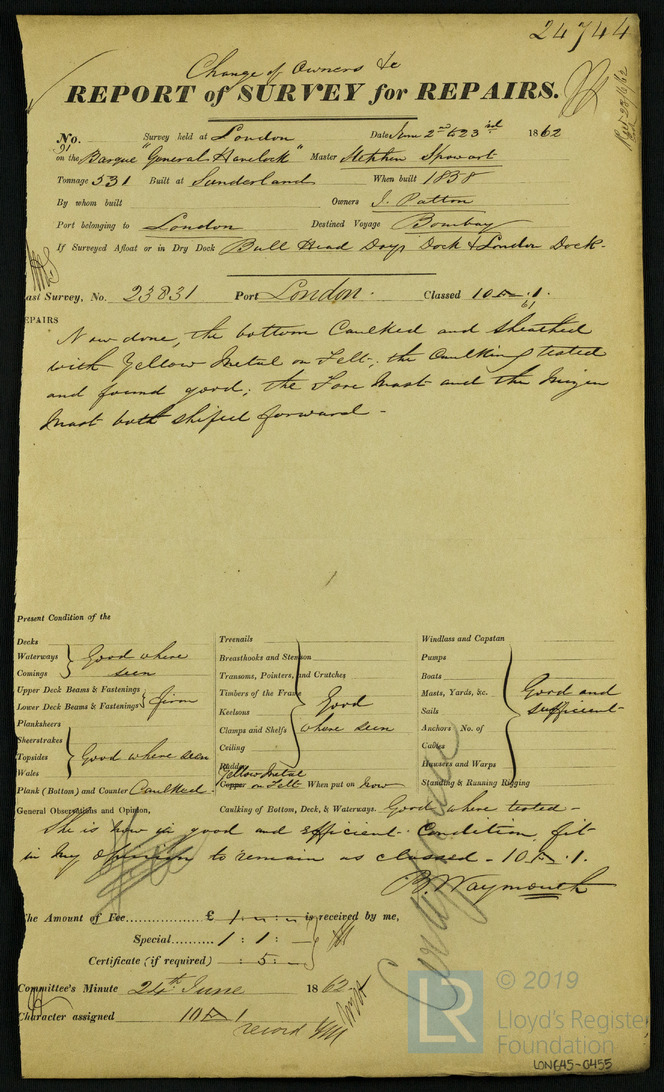 24744
Change of Owners &c
REPORT of SURVEY for REPAIRS.
Rec 23/6/62
No. 91 Survey held at London Date June 2nd & 23rd 1862
on the Barque "General Havelock" Master Stephen Spowart
Tonnage 531 Built at Sunderland When built 1858
By whom built Owners J. Patton
Port belonging to London Destined Voyage Bombay
If Surveyed Afloat or in Dry Dock Bull Head Days Dock & London Dock.
ast Survey, No. 23831 Port London. Classed 10 A .1.
61
EPAIRS
Now done, the bottom Caulked and sheathed
with Yellow Metal on Felt; the Caulking tested
and found good; the Fore Mast and the Mizen
Mast both shifted forward -
Present Condition of the
Decks
Waterways } Good where
Comings seen
Upper Deck Beams & Fastenings
Lower Deck Beams & Fastenings } firm
Planksheers
Sheerstrakes
Topsides } Good where seen
Wales
Plank (Bottom) and Counter Caulked.
Treenails
Breasthooks and Stemson
Transoms, Pointers, and Crutches
Timbers of the Frame } Good
Keelsons
Clamps and Shelfs where seen
Ceiling
Rudder
Yellow Metal
Copper on Felt When put on Now
Windlass and Capstan
Pumps
Boats
Masts, Yards, &c. } Good and
Sails sufficient
Anchors No. of
Cables
Hawsers and Warps
Standing & Running Rigging
General Observations and Opinion, Caulking of Bottom, Deck, & Waterways. Good where tested -
She is now in good and efficient Condition, fit
in my opinion to remain as classed - 10 A .1.
B. Waymouth
The Amount of Fee............... £ 1 : - : - is received by me,
Special......... 1 : 1 : -
Certificate (if required) - : 5 : -
Committee's Minute 24th June 1862
Character assigned 10 A 1
record
© 2019
LR
Lloyd's Register
Foundation
LON645-0455